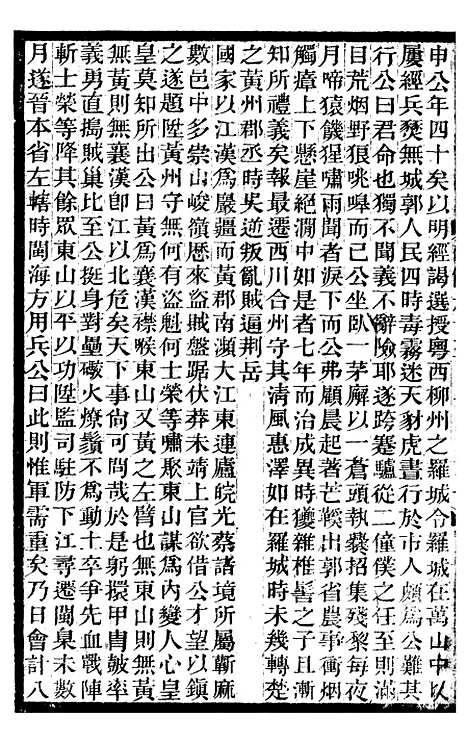 申公年四十矣以明經謁選授粤西柳州之羅城令羅城在萬山中以
屢經兵燹無城郭人民四時毒霧迷天豺虎晝行於市人頗為公難其
行公曰君命也獨不聞義不辭險耶遂跨蹇驢從二僮僕之任至則滿
目荒烟野狼咷嘷而已公坐臥一茅廨以一蒼頭執爨招集殘黎每夜
月啼猿饑猩嘯雨聞者淚下而公弗顧晨起著芒鞵出郭省農事衝烟
觸瘴上下懸崖絕澗中如是者七年而治成異時獉雜椎髻之子且漸
知所禮義矣報最遷西川合州守其清風惠澤如在羅城時未幾轉楚
之黃州郡丞時吳逆叛亂賊逼荆岳
國家以江漢爲嚴疆而黃郡南瀕大江東連廬皖光蔡諸境所屬蘄麻
數邑中多崇山峻嶺歷來盜賊盤踞伏莽未靖上官欲借公才望以鎭
之遂題陞黃州守無何有盜魁何士榮等嘯聚東山謀爲內變人心皇
皇莫知所出公曰黃爲襄漢襟喉東山又黃之左臂也無東山則無黃
無黃則無襄漢卽江以北危矣天下事尙可問哉於是躬擐甲冑皷率
義勇直搗賊巢比至公挺身對壘礮火燎鬚不爲動士卒爭先血戰陣
斬士榮等降其餘眾東山以平以功陞監司駐防下江尋遷閩臬未數
月遂晉本省左轄時閩海方用兵公曰此則惟軍需重矣乃日會計八